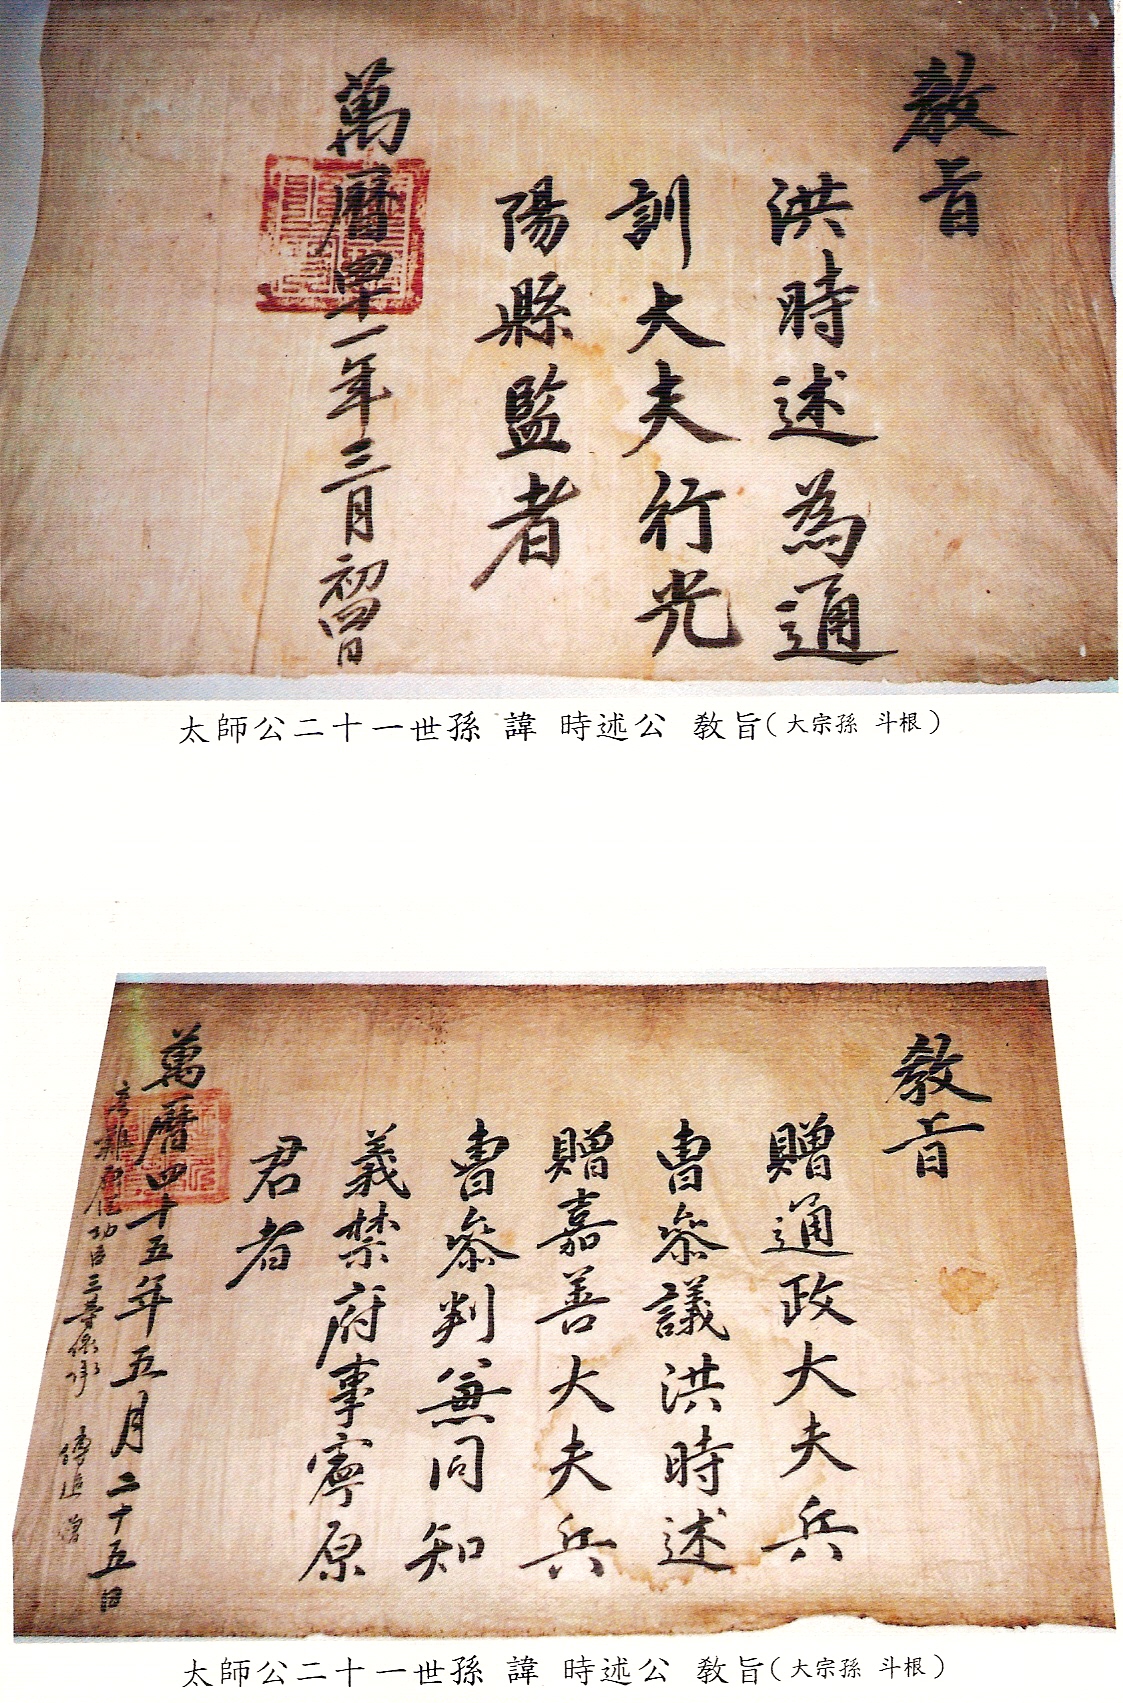 教旨
洪時述為通
訓大夫行光
陽縣監者
萬曆四十一年三月初四日
太師公二十一世孫 諱 時述公 教旨(大宗孫 斗根)
教旨
贈通政大夫兵
曹參議洪時述
贈嘉善大夫兵
曹參判兼同知
義禁府事寧原
君者
萬曆四十五年五月二十五日
三等
太師公二十一世孫 諱 時述公 教旨(大宗孫 斗根)